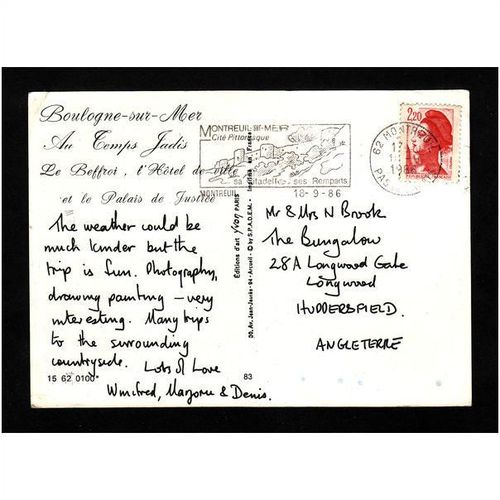 Boulogne-sur-Mer
Au Temps Jadis
Le Beffroi, l'Hôtel de ville
et le Palais de Justice
MONTREUIL-SUR-MER
Cité Pittoresque
sa Citadelle ses Remparts
MONTREUIL
18-9-86
62 MONTREUIL
1986
PAS
2,20
The weather could be
much kinder but the
trip is fun. Photography,
drawing painting – very
interesting. Many trips
to the surrounding
countryside.
Lots of Love
Winifred, Marjorie & Denis.
15 62 0100
83
Éditions d'art yvon PARIS
© by S.P.A.D.E.M.
en France
20, Av. Jean-Jaurès-94-Arcueil
Mr & Mrs N Brook
The Bungalow
28A Longwood Gate
Longwood
HUDDERSFIELD.
ANGLETERRE